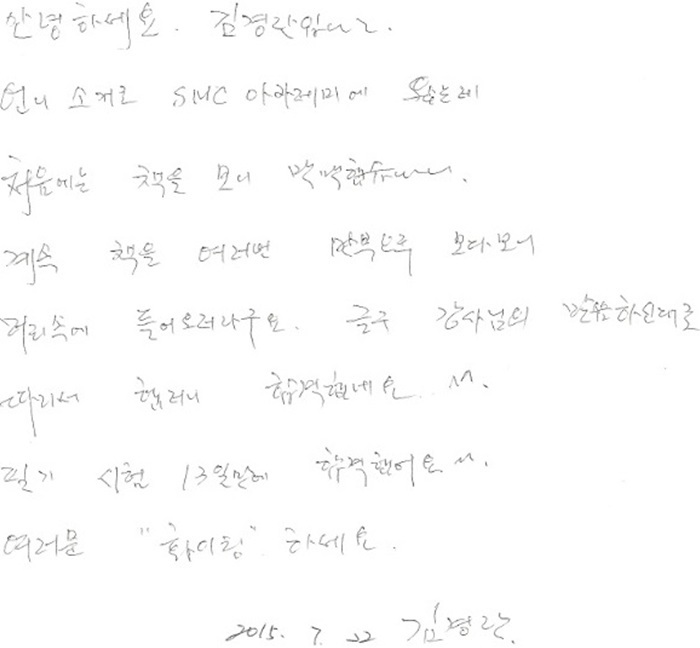 안녕하세요. 김경란입니다.
언니 소개로 SMC 아카데미에 왔는데
처음에는 책을 보니 막막했습니다.
계속 책을 여러번 반복으로 보다보니
머리속에 들어오더라구요. 글구 강사님의 말씀하신대로
따라서 했더니 합격했네요 ^^.
필기 시험 13일만에 합격했어요 ^^.
여러분 "화이팅" 하세요.
2015. 7. 22 김경란.